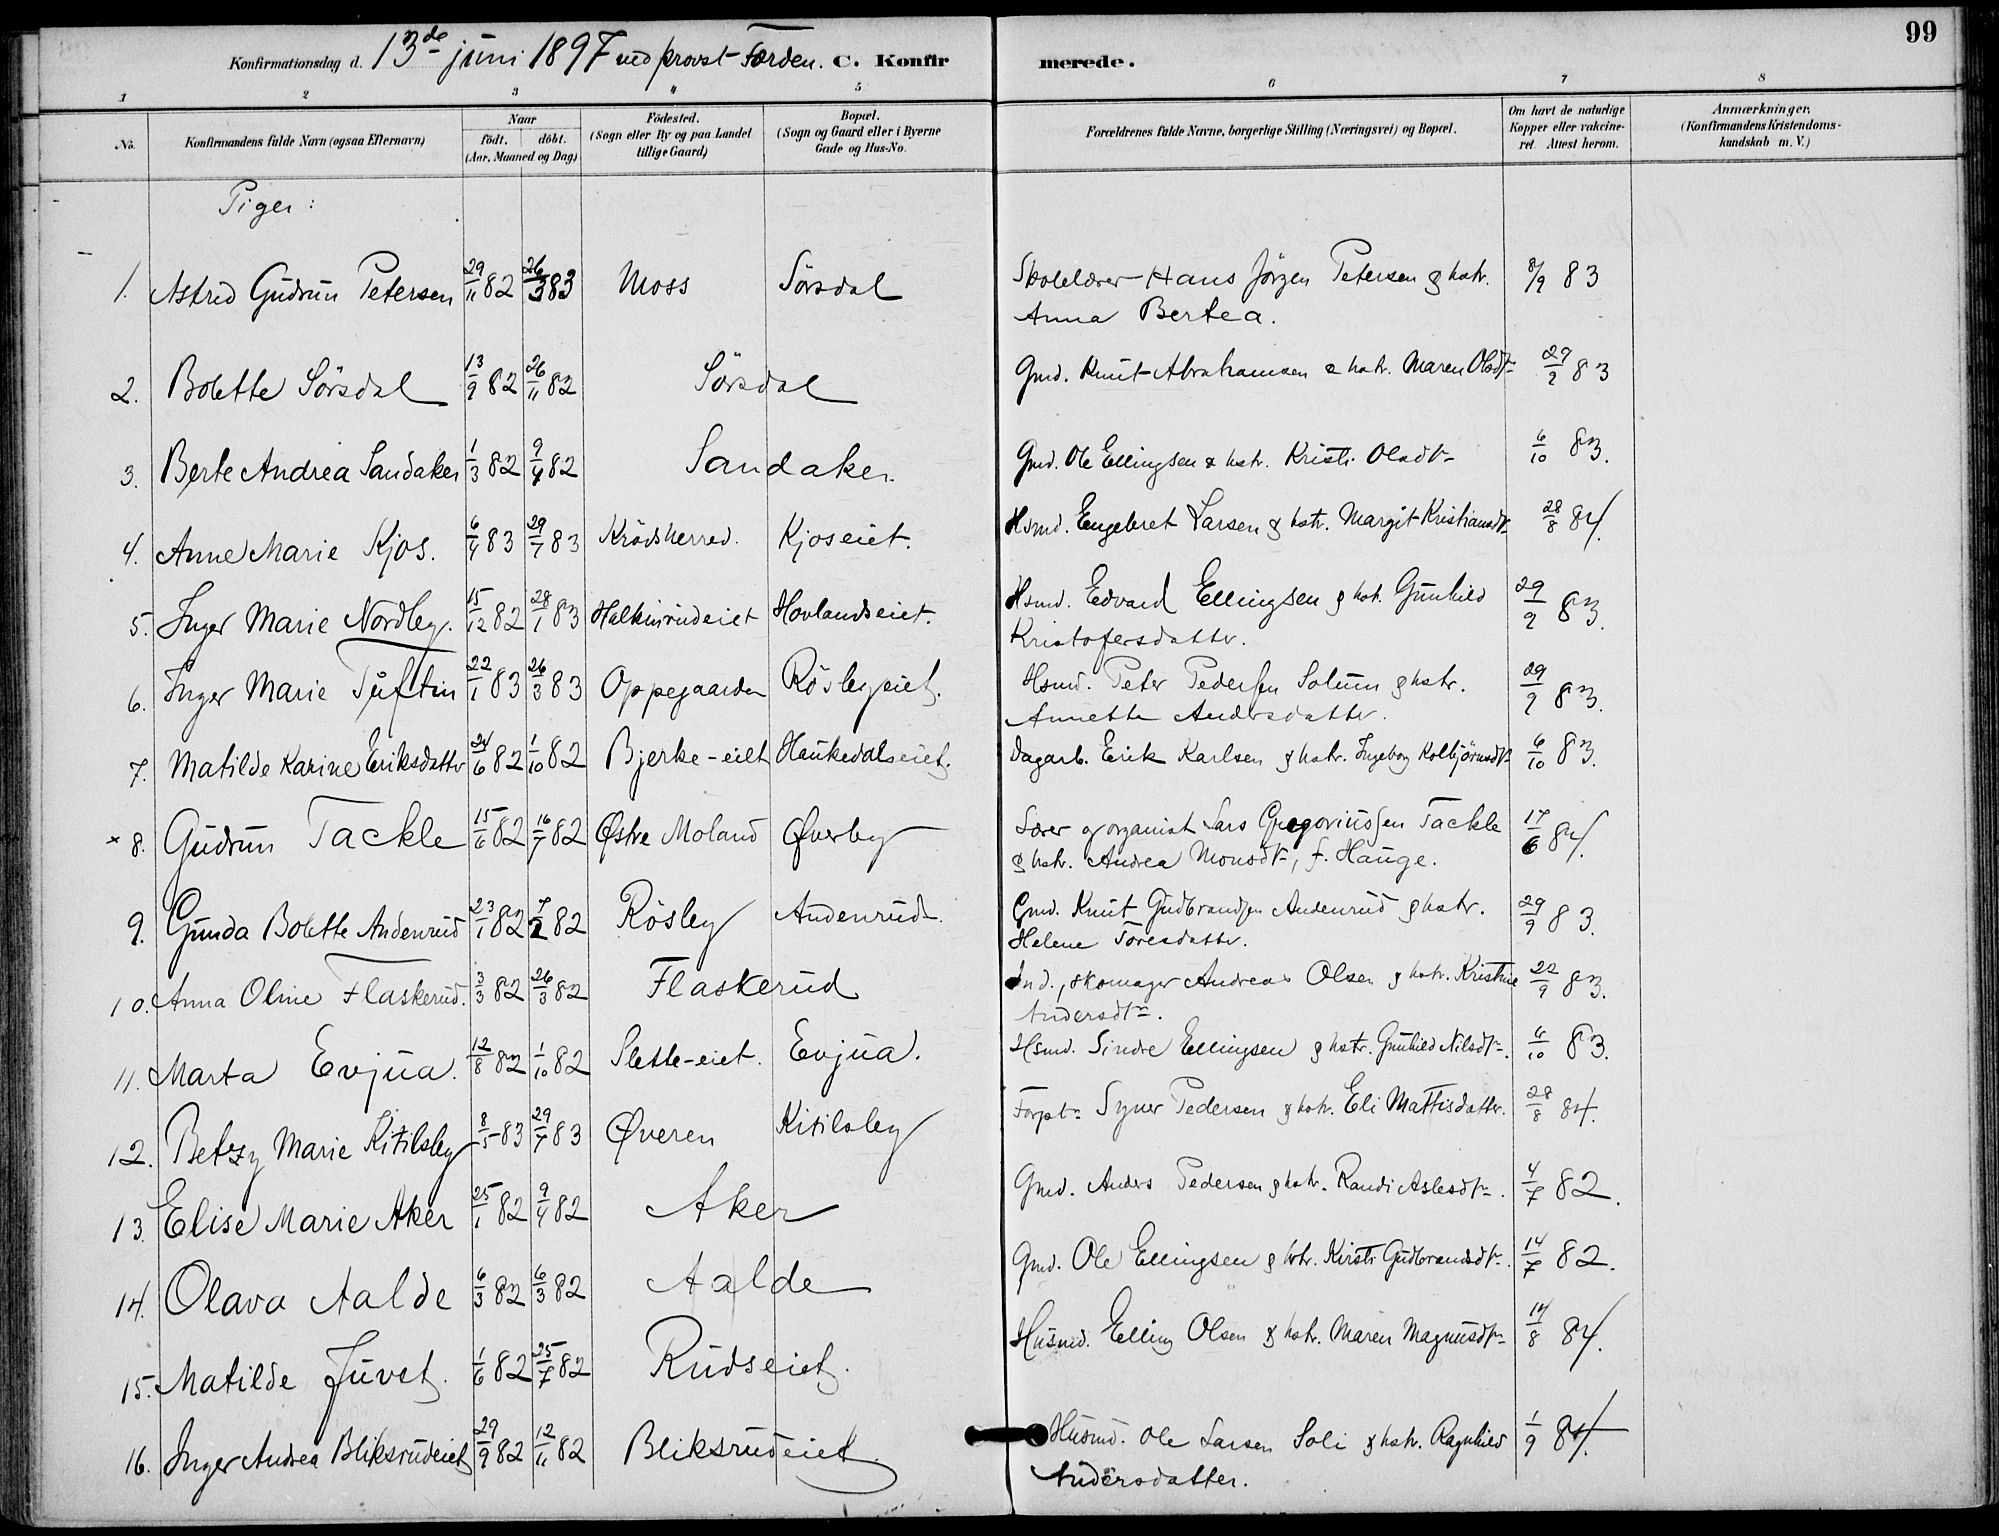 99
Konfirmationsdag d. 13de juni 1897 ved provst Færden. C. Konfirmerede.
1 2 3 4 5 6 7 8
No. Konfirmandens fulde Navn (ogsaa Efternavn) Naar født. døbt. (Aar, Maaned og Dag) Fødested. (Sogn eller By og paa Landet tillige Gaard) Bopæl. (Sogn og Gaard eller i Byerne Gade og Hus-No. Forældrenes fulde Navne, borgerlige Stilling (Næringsvei) og Bopæl. Om havt de naturlige Kopper eller vakcineret. Attest herom. Anmærkninger. (Konfirmandens Kristendomskundskab m. V.)
Piger:
1. Astrid Gudrun Petersen 29/11 82 26/3 83 Moss Sörsdal Skolelærer Hans Jörgen Petersen & hstr. 8/9 83
Anna Bertea.
2. Bolette Sörsdal 13/9 82 26/11 82 Sörsdal Gmd. Knut Abrahamsen & hstr. Maren Olsdtr 29/9 83
3. Berte Andrea Sandaker 1/3 82 9/4 82 Sandaker. Gmd. Ole Ellingsen & hstr. Kristi Olsdtr 6/10 83.
4. Anne Marie Kjos. 6/4 83 29/7 83 Krödsherred. Kjoseiet. Hsmd. Engebret Larsen & hstr. Margit Kristiansdtr 28/8 84.
5. Inger Marie Nordby. 15/12 82 28/1 83 Halkinrudeiet Hovlandseiet. Hsmd. Edvard Ellingsen & hstr. Gunhild 29/9 83.
Kristofersdatter.
6. Inger Marie Tuftin 22/1 83 26/3 83 Oppegaarden Rösbyeiet. Hsmd. Peter Pedersen Solum & hstr. 29/9 83.
Annette Andersdatter.
7. Matilde Karine Eriksdatter 24/6 82 1/10 82 Bjerke-eiet Haukedalseiet. Dagarb. Erik Karlsen & hstr. Ingeborg Kolbjörnsdtr 6/10 83.
× 8. Gudrun Tackle 15/6 82 16/7 82 Østre Moland Øverby Lærer og organist Lars Gregoriussen Tackle 17/6 84.
& hstr. Andrea Monsdtr, f. Hauge.
9. Gunda Bolette Andenrud 23/1 82 7/2 82 Rösby Andenrud. Gmd. Knut Gudbrandsen Andenrud & hstr. 29/9 83.
Helene Toresdatter.
10. Anna Oline Flaskerud. 3/3 82 26/3 82 Flaskerud Ind., skomager Andreas Olsen & hstr. Kristine 22/9 83.
Andersdtr.
11. Marta Evjua. 12/8 82 1/10 82 Slette-eiet. Evjua. Hsmd. Sindre Ellingsen & hstr. Gunhild Nilsdtr. 6/10 83.
12. Betzy Marie Kitilsby 8/5 83 29/7 83 Øveren Kitilsby Forpt. Syver Pedersen & hstr. Eli Mattisdatter. 28/8 84.
13. Elise Marie Aker 25/1 82 9/4 82 Aker Gmd. Anders Pedersen & hstr. Randi Aslesdtr. 4/7 82.
14. Olava Aalde 6/3 82 6/3 82 Aalde Gmd. Ole Ellingsen & hstr. Kirsti Gudbrandsdtr. 14/7 82.
15. Matilde Juvet. 1/6 82 25/7 82 Rudseiet. Husmd. Elling Olsen & hstr. Maren Magnusdtr 14/8 84.
16. Inger Andrea Bliksrudeiet 29/9 82 12/11 82 Bliksrudeiet. Husmd. Ole Larsen Soli & hstr. Ragnhild 1/9 84.
Andersdatter.